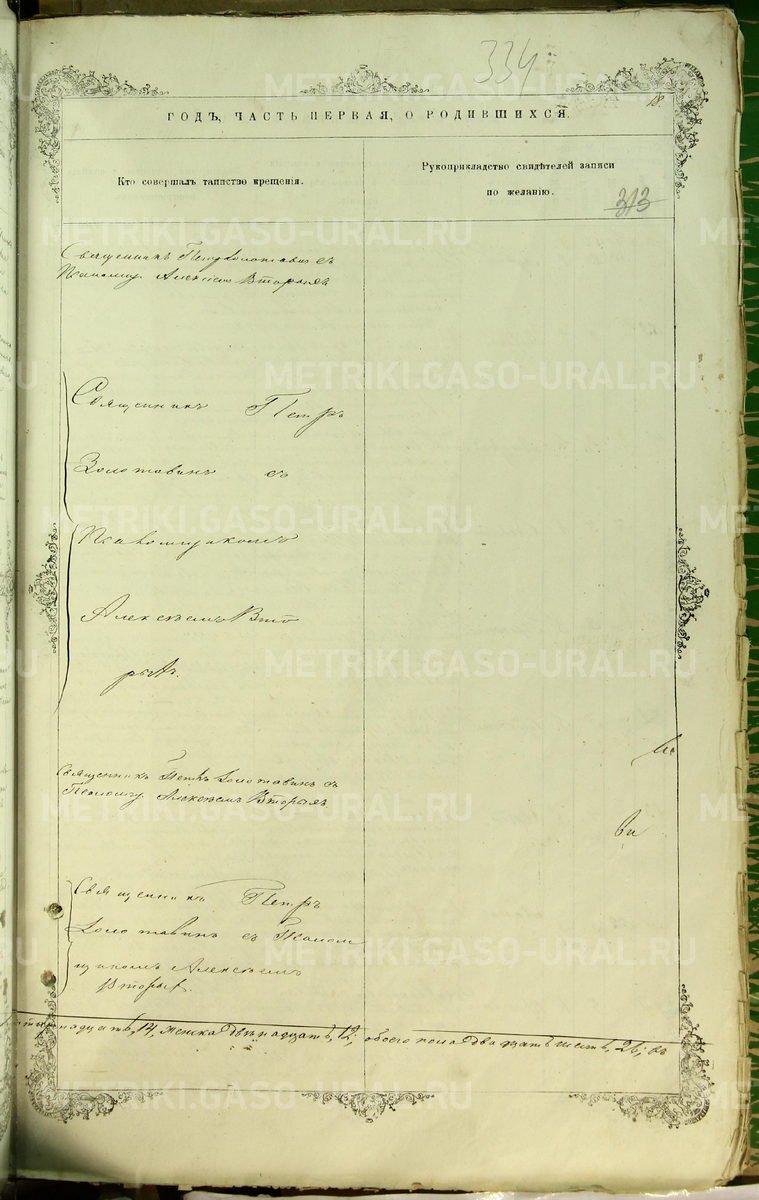 334
ГОДЪ, ЧАСТЬ ПЕРВАЯ, О РОДИВШИХСЯ.
Кто совершалъ таинство крещенія.
Рукоприкладство свидѣтелей записи
по желанію.
313
Священникъ Петръ Золотавинъ съ
Алексѣемъ Вторыхъ
Священникъ Петръ
Золотавинъ съ
Алексѣемъ Вто
рыхъ.
Священникъ Петръ Золотавинъ съ
Алексѣемъ Вторыхъ
Священникъ Петръ
Золотавинъ съ
Алексѣемъ
Вторыхъ.
14, женска двѣнадцать, 12; обоего пола двадцать шесть, 26; въ
METRIKI.GASO-URAL.RU